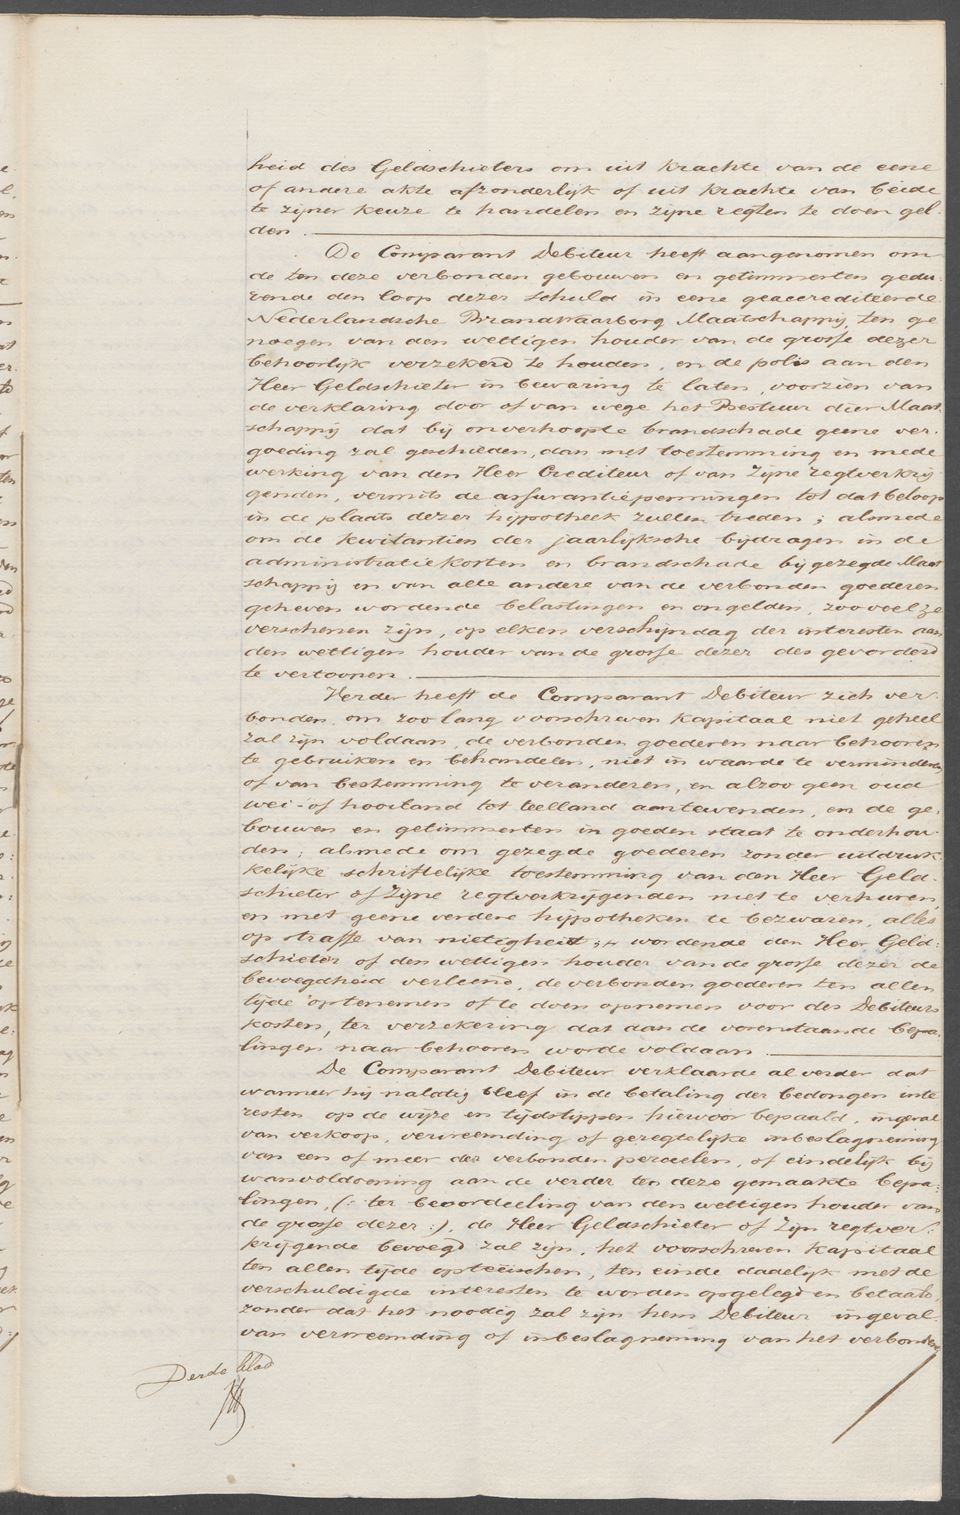 heid des Geldschieters om uit krachte van de eene
of andere akte afzonderlijk of uit krachte van beide
te zijner keuze te handelen en zijne regten te doen gel-
den.
De Comparant Debiteur heeft aangenomen om
de ten deze verbonden gebouwen en getimmerten gedu-
rende den loop dezer schuld in eene geaccrediteerde
Nederlandsche Brandwaarborg Maatschappij, ten ge
noegen van den wettigen houder van de grosse dezer
behoorlijk verzekerd te houden, en de polis aan den
Heer Geldschieter in bewaring te laten, voorzien van
de verklaring door of van wege het Bestuur dier Maat-
schappij dat bij onverhoopte brandschade geene ver-
goeding zal geschieden, dan met toestemming en mede
werking van den Heer Crediteur of van zijne regtverkrij
genden, vermits de assurantiepenningen tot dat beloop
in de plaats dezer hypotheek zullen treden; alsmede
om de kwitantien der jaarlijksche bijdragen in de
administratiekosten en brandschade bij gezegde Maat
schappij en van alle andere van de verbonden goederen
geheven wordende belastingen en ongelden, zoo veel ze
verschenen zijn, op elken verschijndag der interesten aan
den wettigen houder van de grosse dezer des gevorderd
te vertoonen.
Verder heeft de Comparant Debiteur zich ver-
bonden, om zoo lang voorschreven kapitaal niet geheel
zal zijn voldaan, de verbonden goederen naar behooren
te gebruiken en behandelen, niet in waarde te verminderen
of van bestemming te veranderen, en alzoo geen oud
wei- of hooiland tot teelland aantewenden, en de ge-
bouwen en getimmerten in goeden staat te onderhou-
den; alsmede om gezegde goederen zonder uitdruk-
kelijke schriftelijke toestemming van den Heer Geld-
schieter of zijne regtverkrijgenden niet te verhuren,
en met geene verdere hypotheken te bezwaren, alles
op straffe van nietigheid; wordende den Heer Geld-
schieter of den wettigen houder van de grosse dezer de
bevoegdheid verleend, de verbonden goederen ten allen
tijde optenemen of te doen opnemen voor des Debiteurs
kosten, ter verzekering dat aan de vorenstaande bepa-
lingen naar behooren worde voldaan.
De Comparant Debiteur verklaarde al verder dat
wanneer hij nalatig bleef in de betaling der bedongen inte
resten op de wijze en tijdstippen hiervoor bepaald, ingeval
van verkoop, vervreemding of geregtelijke inbeslagneming
van een of meer der verbonden perceelen, of eindelijk bij
wanvoldoening aan de verder ten deze gemaakte bepa-
lingen, (: ter beoordeeling van den wettigen houder van
de grosse dezer :), de Heer Geldschieter of zijn regtver-
krijgende bevoegd zal zijn, het voorschreven kapitaal
ten allen tijde opteëischen, ten einde dadelijk met de
verschuldigde interesten te worden opgelegd en betaald,
zonder dat het noodig zal zijn hem Debiteur ingeval
van vervreemding of inbeslagneming van het verbondene
Derde blad